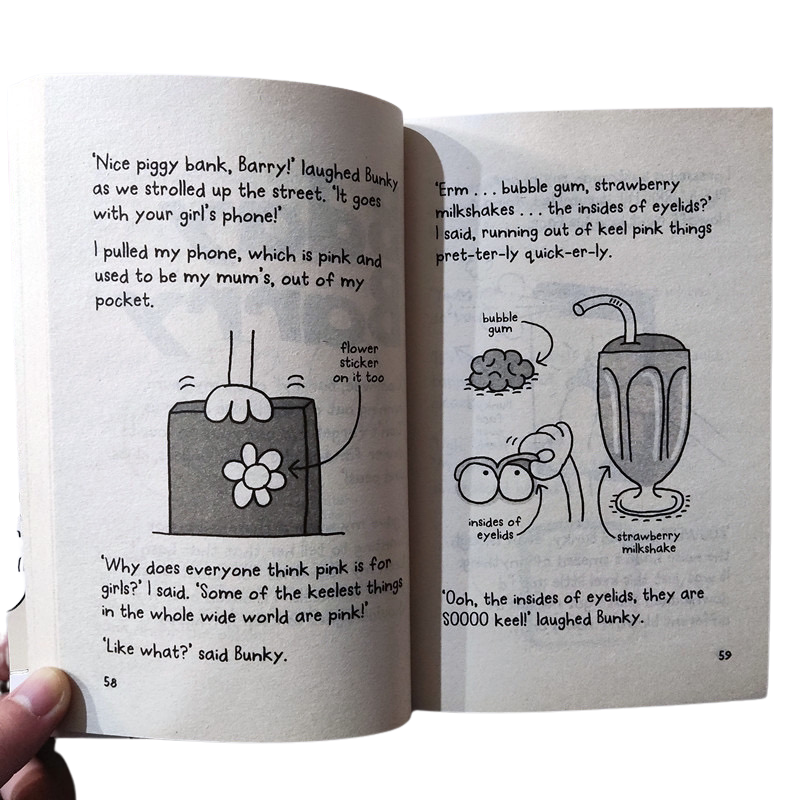 'Nice piggy bank, Barry!' laughed Bunky
as we strolled up the street. 'It goes
with your girl's phone!'
I pulled my phone, which is pink and
used to be my mum's, out of my
pocket.
flower
sticker
on it too
'Why does everyone think pink is for
girls?' I said. 'Some of the keelest things
in the whole wide world are pink!'
'Like what?' said Bunky.
58
'Erm . . . bubble gum, strawberry
milkshakes . . . the insides of eyelids?'
I said, running out of keel pink things
pret-ter-ly quick-er-ly.
bubble
gum
insides of
eyelids
strawberry
milkshake
'Ooh, the insides of eyelids, they are
SOOOO keel!' laughed Bunky.
59